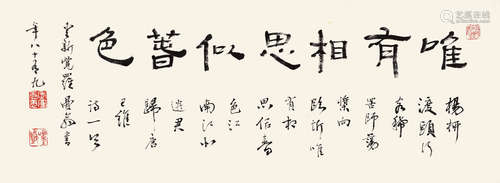 唯有相思似春色
楊柳
渡頭行
客稀
罟師蕩
槳向
臨圻唯
有相
思似春
色江
南江北
送君
歸唐
王維
詩一首
愛新覺羅 書
年八十有九